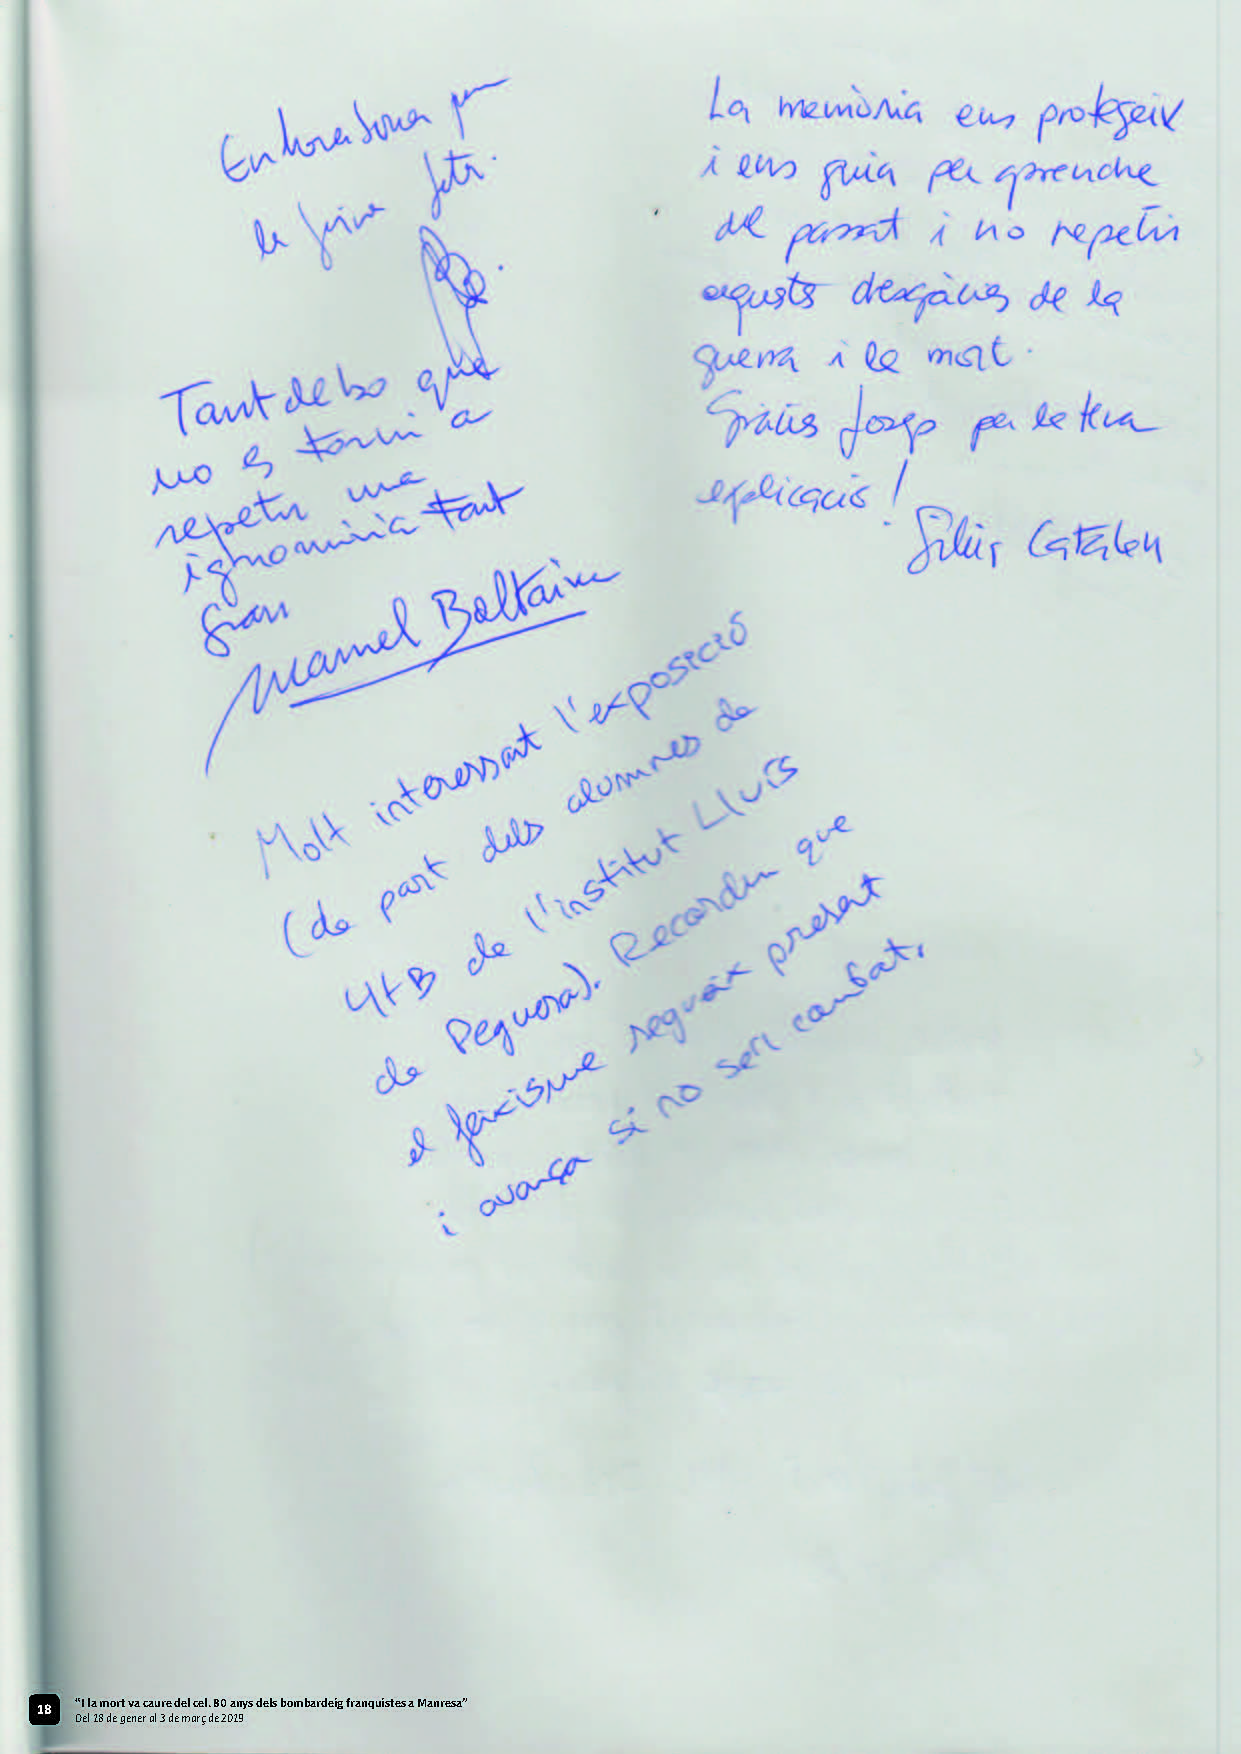 Enhorabona per
la feina feta.
Tant de bo que
no es torni a
repetir una
ignominia tant
gran
Manel Baltaine
La memòria ens protegeix
i ens guia per aprendre
del passat i no repetir
aquests desgàcies de la
guerra i la mort.
Gràcies Josep per la teva
explicació!
Catalan
Molt interessant l'exposició
(de part dels alumnes de
4tB de l'institut Lluís
de Peguera). Recordeu que
el feixisme segueix present
i avança si no se'l combat.
18
"I la mort va caure del cel. 80 anys dels bombardeig franquistes a Manresa"
Del 18 de gener al 3 de març de 2019